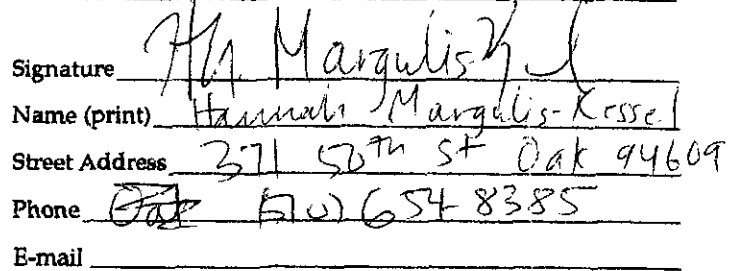 Signature H Margulis-K
Name (print) Hannah Margulis-Kessel
Street Address 371 50th St Oak 94609
Phone Oak (510) 654 8385
E-mail